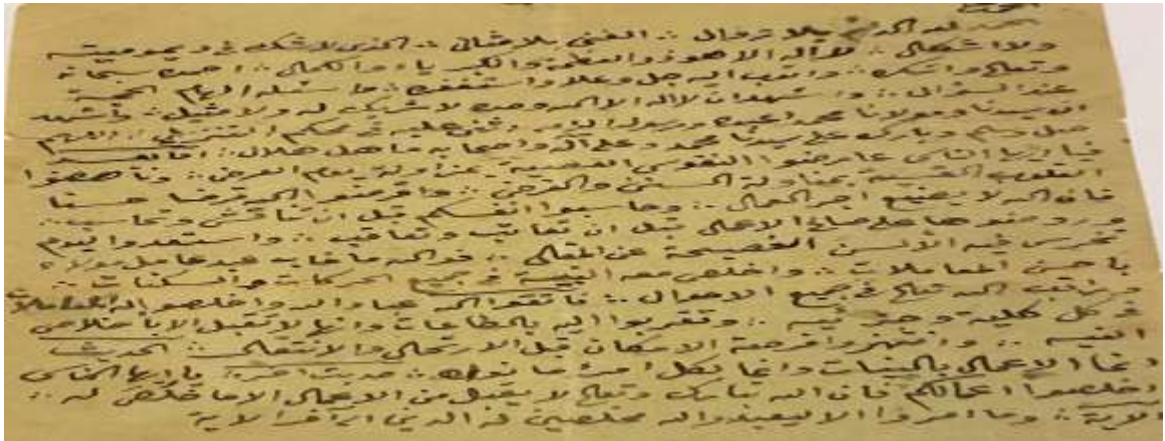 الحمد لله الدائم بلا زوال .: الغني بلا مثال .: الذي لا شك في ديموميته
ولا اشكال .: لا اله الا هو ذو العظمة والكبرياء والكمال .: احمده سبحانه
وتعالى واشكره .: واتوب اليه جل وعلا واستغفره .: واسئله الهام الحجة
عند السؤال .: واشهد ان لا اله الا الله وحده لا شريك له ولا مثيل .: واشهد
ان سيدنا ومولانا محمدا عبده ورسوله الذي اثنى عليه في محكم التنزيل .: اللهم
صل وسلم وبارك على سيدنا محمد وعلى آله واصحابه ما هل هلال .: اما بعد
فيا ايها الناس عارضوا النفوس العصية يوم العرض .:
القلوب القسية بمناولة السنن والفرض .: واقرضوا الله قرضا حسنا
فان الله لا يضيع اجر العمال .: وحاسبوا انفسكم قبل ان تناقش وتحاسب .:
وروضوها على صالح الاعمال قبل ان تعاتب وتعاقب .: واستعدوا ليوم
تخرس فيه الألسن الفصيحة عن المقال .: فوالله ما خاب عبد عامل مولاه
باحسن المعاملات .: واخلص معه النية في جميع الحركات والسكنات .:
وراقب الله تعالى في جميع الاحوال .: فاتقوا الله عباد الله واخلصوا له المعاملات
في كل كلية وجزئية .: وتقربوا اليه بالطاعات وانها لا تقبل الا باخلاص
النية .: وانتهزوا فرصة الامكان قبل الارتحال والانتقال .: الحديث
انما الاعمال بالنيات وانما لكل امرئ ما نوى .: حديث آخر .: يا ايها الناس
اخلصوا اعمالكم فان الله تبارك وتعالى لا يقبل من الاعمال الا ما خلص له .:
الاية .: وما امروا الا ليعبدوا الله مخلصين له الدين الاية